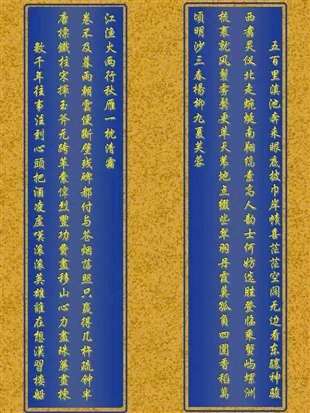 五百里滇池奔来眼底披巾岸幘喜茫茫空阔无边看东驤神骏
西翥灵仪北走蜿蜒南翔縞素高人韵士何妨选胜登临乘蟹嶼螺洲
梳裹就风鬟雾鬓更苹天苇地点缀些翠羽丹霞莫孤負四圍香稻萬
頃明沙三春楊柳九夏芙蓉
數千年往事注到心頭把酒凌虚嘆滚滚英雄誰在想漢習楼船
唐標鐵柱宋揮玉斧元跨革囊偉烈豐功費盡移山心力盡珠簾畫棟
卷不及暮雨朝雲便斷壁残碑都付与苍烟落照只贏得几杵疏钟半
江渔火两行秋雁一枕清霜